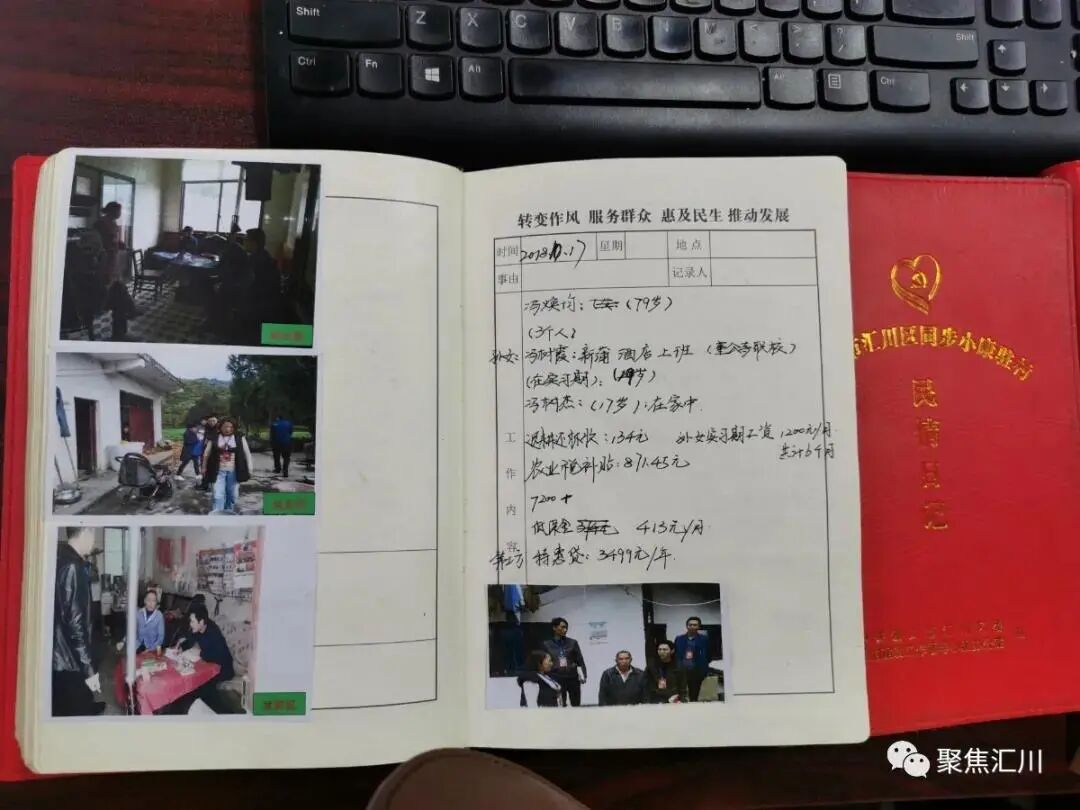 Shift
Z X C V B N M
Shift
Ctrl Fn Alt
Alt Ctrl
转变作风 服务群众 惠及民生 推动发展
时间 2018.10.17 星期 地点
事由 记录人
(79岁)
(3个人)
孙女: 冯树霞: 新蒲酒店上班
(在实习期): (19岁)
冯树杰: (17岁): 在家中.
退耕还林收: 134元 实习期工资 1200元/月.
共计6个月
农业税补贴: 871.45元
7200+
低保金 413元/月.
特惠贷: 3499元/年.
工作内容
汇川区同步小康驻村
民情日记
聚焦汇川